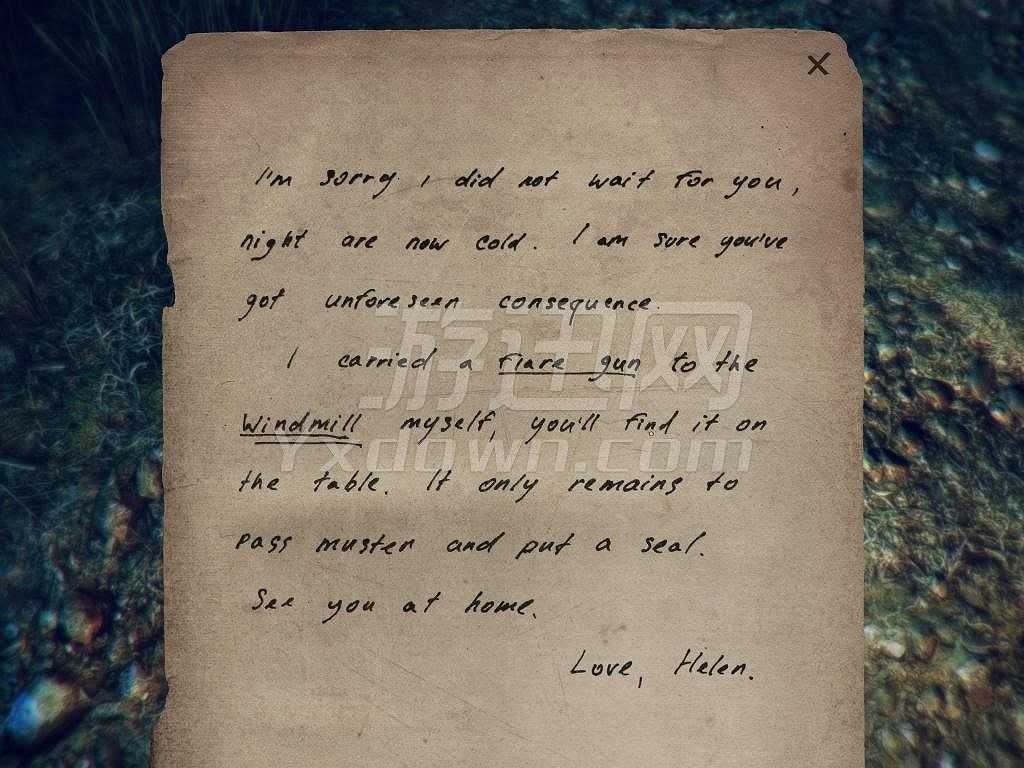 I'm sorry I did not wait for you,
night are now cold. I am sure you've
got unforeseen consequence.
I carried a flare gun to the
windmill myself, you'll find it on
the table. It only remains to
pass muster and put a seal.
See you at home.
Love, Helen.
游迅网
Yxdown.com